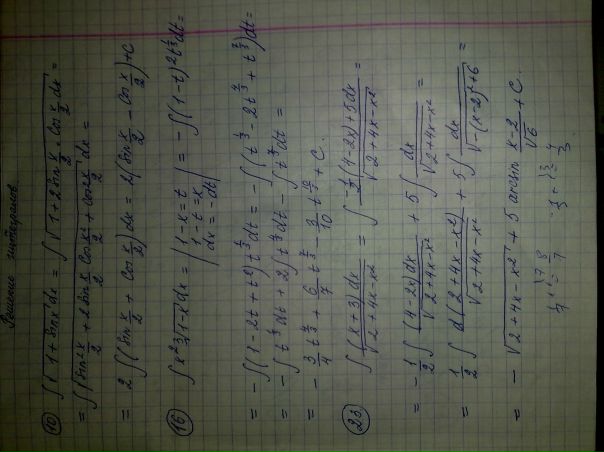 Решение интегралов.
10) ∫√(1+sin x) dx = ∫√(1+2 sin x/2 · cos x/2) dx =
= ∫√(sin² x/2 + 2 sin x/2 cos x/2 + cos² x/2) dx =
= 2∫(sin x/2 + cos x/2) dx = 2(sin x/2 − cos x/2) + C
16) ∫x² ∛(1−x) dx = | 1−x=t
1−t=x
dx=−dt | = −∫(1−t)² t^(1/3) dt =
= −∫(1−2t+t²) t^(1/3) dt = −∫(t^(1/3) − 2t^(4/3) + t^(7/3)) dt =
= −∫t^(1/3) dt + 2∫t^(4/3) dt − ∫t^(7/3) dt =
= −3/4 t^(4/3) + 6/7 t^(7/3) − 3/10 t^(10/3) + C.
23) ∫(x+3)dx/√(2+4x−x²) = ∫(−1/2(4−2x)+5)dx/√(2+4x−x²) =
= −1/2 ∫(4−2x)dx/√(2+4x−x²) + 5∫dx/√(2+4x−x²) =
= 1/2 ∫d(2+4x−x²)/√(2+4x−x²) + 5∫dx/√(−(x−2)²+6) =
= −√(2+4x−x²) + 5 arcsin (x−2)/√6 + C.